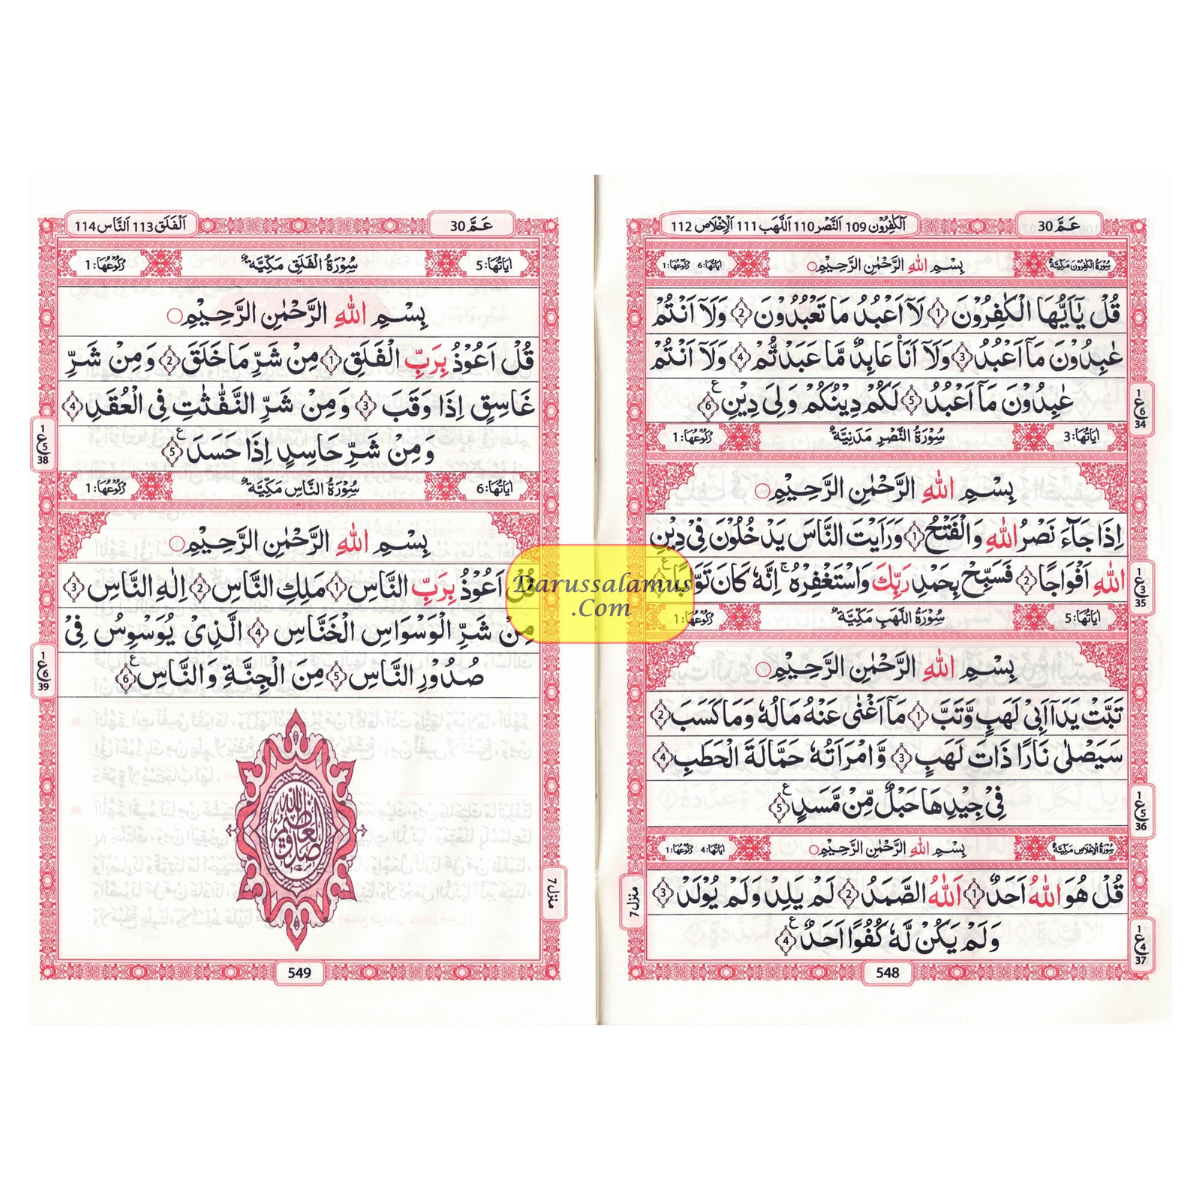 عَمَّ 30
اَلْكٰفِرُوْن 109 اَلنَّصْر 110 اَللَّهَب 111 اَلْاِخْلَاص 112
سُوْرَةُ الْكٰفِرُوْنَ مَكِّيَّةٌ
بِسْمِ اللّٰهِ الرَّحْمٰنِ الرَّحِيْمِ
اٰيَاتُهَا: 6 رُكُوْعُهَا: 1
قُلْ يٰٓاَيُّهَا الْكٰفِرُوْنَ 1 لَآ اَعْبُدُ مَا تَعْبُدُوْنَ 2 وَلَآ اَنْتُمْ
عٰبِدُوْنَ مَآ اَعْبُدُ 3 وَلَآ اَنَا۠ عَابِدٌ مَّا عَبَدْتُّمْ 4 وَلَآ اَنْتُمْ
عٰبِدُوْنَ مَآ اَعْبُدُ 5 لَكُمْ دِيْنُكُمْ وَلِيَ دِيْنِ 6
1 ع 6 34
اٰيَاتُهَا: 3 سُوْرَةُ النَّصْرِ مَدَنِيَّةٌ رُكُوْعُهَا: 1
بِسْمِ اللّٰهِ الرَّحْمٰنِ الرَّحِيْمِ
اِذَا جَآءَ نَصْرُ اللّٰهِ وَالْفَتْحُ 1 وَرَاَيْتَ النَّاسَ يَدْخُلُوْنَ فِيْ دِيْنِ
اللّٰهِ اَفْوَاجًا 2 فَسَبِّحْ بِحَمْدِ رَبِّكَ وَاسْتَغْفِرْهُ اِنَّهٗ كَانَ تَوَّابًا
1 ع 3 35
اٰيَاتُهَا: 5 سُوْرَةُ اللَّهَبِ مَكِّيَّةٌ رُكُوْعُهَا: 1
بِسْمِ اللّٰهِ الرَّحْمٰنِ الرَّحِيْمِ
تَبَّتْ يَدَآ اَبِيْ لَهَبٍ وَّتَبَّ 1 مَآ اَغْنٰى عَنْهُ مَالُهٗ وَمَا كَسَبَ 2
سَيَصْلٰى نَارًا ذَاتَ لَهَبٍ 3 وَّامْرَاَتُهٗ حَمَّالَةَ الْحَطَبِ 4
فِيْ جِيْدِهَا حَبْلٌ مِّنْ مَّسَدٍ 5
1 ع 5 36
سُوْرَةُ الْاِخْلَاصِ مَكِّيَّةٌ
بِسْمِ اللّٰهِ الرَّحْمٰنِ الرَّحِيْمِ
اٰيَاتُهَا: 4 رُكُوْعُهَا: 1
قُلْ هُوَ اللّٰهُ اَحَدٌ 1 اَللّٰهُ الصَّمَدُ 2 لَمْ يَلِدْ وَلَمْ يُوْلَدْ 3
وَلَمْ يَكُنْ لَّهٗ كُفُوًا اَحَدٌ 4
1 ع 4 37
منزل 7
548
عَمَّ 30
اَلْفَلَق 113 اَلنَّاس 114
اٰيَاتُهَا: 5 سُوْرَةُ الْفَلَقِ مَكِّيَّةٌ رُكُوْعُهَا: 1
بِسْمِ اللّٰهِ الرَّحْمٰنِ الرَّحِيْمِ
قُلْ اَعُوْذُ بِرَبِّ الْفَلَقِ 1 مِنْ شَرِّ مَا خَلَقَ 2 وَمِنْ شَرِّ
غَاسِقٍ اِذَا وَقَبَ 3 وَمِنْ شَرِّ النَّفّٰثٰتِ فِي الْعُقَدِ 4
وَمِنْ شَرِّ حَاسِدٍ اِذَا حَسَدَ 5
1 ع 5 38
اٰيَاتُهَا: 6 سُوْرَةُ النَّاسِ مَكِّيَّةٌ رُكُوْعُهَا: 1
بِسْمِ اللّٰهِ الرَّحْمٰنِ الرَّحِيْمِ
قُلْ اَعُوْذُ بِرَبِّ النَّاسِ 1 مَلِكِ النَّاسِ 2 اِلٰهِ النَّاسِ 3
مِنْ شَرِّ الْوَسْوَاسِ الْخَنَّاسِ 4 الَّذِيْ يُوَسْوِسُ فِيْ
صُدُوْرِ النَّاسِ 5 مِنَ الْجِنَّةِ وَالنَّاسِ 6
1 ع 6 39
صدق الله العظيم
منزل 7
549
Darussalamus
.Com